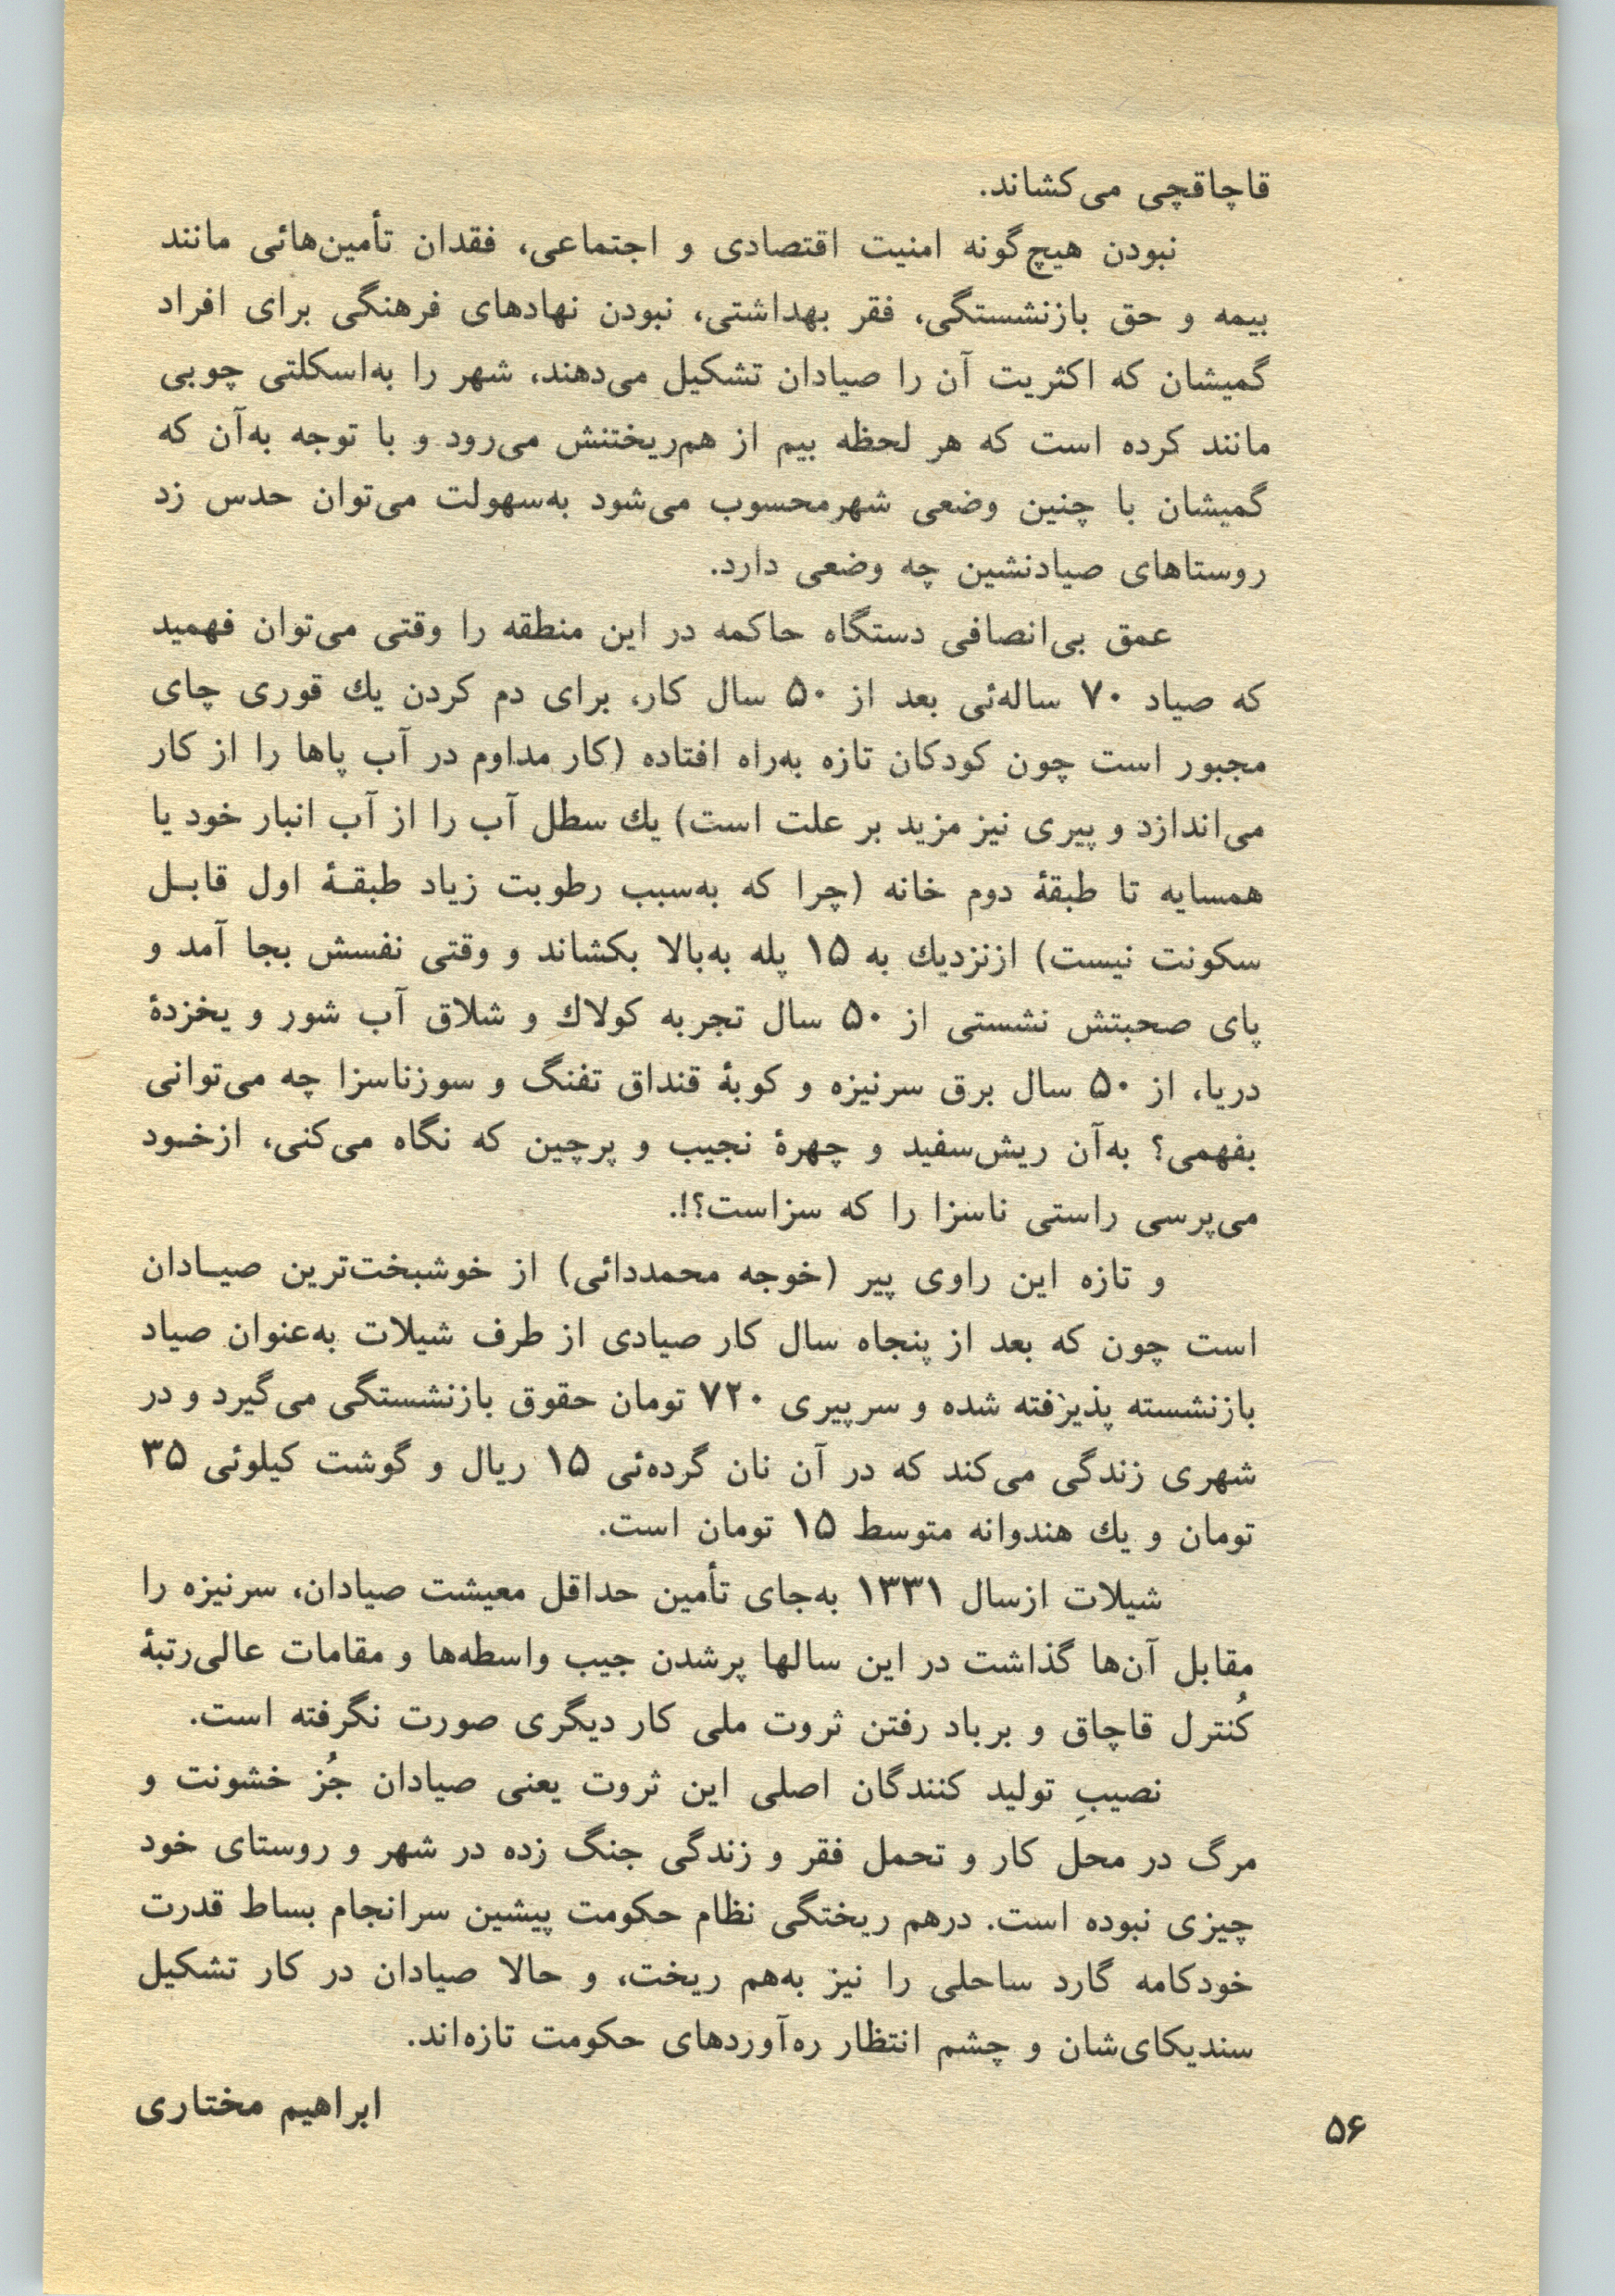 قاچاقچی می‌کشاند.
نبودن هیچ‌گونه امنیت اقتصادی و اجتماعی، فقدان تأمین‌هائی مانند
بیمه و حق بازنشستگی، فقر بهداشتی، نبودن نهادهای فرهنگی برای افراد
گمیشان که اکثریت آن را صیادان تشکیل می‌دهند، شهر را به‌اسکلتی چوبی
مانند کرده است که هر لحظه بیم از هم‌ریختنش می‌رود و با توجه به‌آن که
گمیشان با چنین وضعی شهرمحسوب می‌شود به‌سهولت می‌توان حدس زد
روستاهای صیادنشین چه وضعی دارد.
عمق بی‌انصافی دستگاه حاکمه در این منطقه را وقتی می‌توان فهمید
که صیاد ۷۰ ساله‌ئی بعد از ۵۰ سال کار، برای دم کردن یك قوری چای
مجبور است چون کودکان تازه به‌راه افتاده (کار مداوم در آب پاها را از کار
می‌اندازد و پیری نیز مزید بر علت است) یك سطل آب را از آب انبار خود یا
همسایه تا طبقهٔ دوم خانه (چرا که به‌سبب رطوبت زیاد طبقـهٔ اول قابـل
سکونت نیست) ازنزدیك به ۱۵ پله به‌بالا بکشاند و وقتی نفسش بجا آمد و
پای صحبتش نشستی از ۵۰ سال تجربه کولاك و شلاق آب شور و یخزدهٔ
دریا، از ۵۰ سال برق سرنیزه و کوبهٔ قنداق تفنگ و سوزناسزا چه می‌توانی
بفهمی؟ به‌آن ریش‌سفید و چهرهٔ نجیب و پرچین که نگاه می‌کنی، ازخـود
می‌پرسی راستی ناسزا را که سزاست؟!.
و تازه این راوی پیر (خوجه محمددائی) از خوشبخت‌ترین صیـادان
است چون که بعد از پنجاه سال کار صیادی از طرف شیلات به‌عنوان صیاد
بازنشسته پذیرفته شده و سرپیری ۷۲۰ تومان حقوق بازنشستگی می‌گیرد و در
شهری زندگی می‌کند که در آن نان گرده‌ئی ۱۵ ریال و گوشت کیلوئی ۳۵
تومان و یك هندوانه متوسط ۱۵ تومان است.
شیلات ازسال ۱۳۳۱ به‌جای تأمین حداقل معیشت صیادان، سرنیزه را
مقابل آن‌ها گذاشت در این سالها پرشدن جیب واسطه‌ها و مقامات عالی‌رتبهٔ
کُنترل قاچاق و برباد رفتن ثروت ملی کار دیگری صورت نگرفته است.
نصیبِ تولید کنندگان اصلی این ثروت یعنی صیادان جُز خشونت و
مرگ در محل کار و تحمل فقر و زندگی جنگ زده در شهر و روستای خود
چیزی نبوده است. درهم ریختگی نظام حکومت پیشین سرانجام بساط قدرت
خودکامه گارد ساحلی را نیز به‌هم ریخت، و حالا صیادان در کار تشکیل
سندیکای‌شان و چشم انتظار ره‌آوردهای حکومت تازه‌اند.
ابراهیم مختاری
۵۶